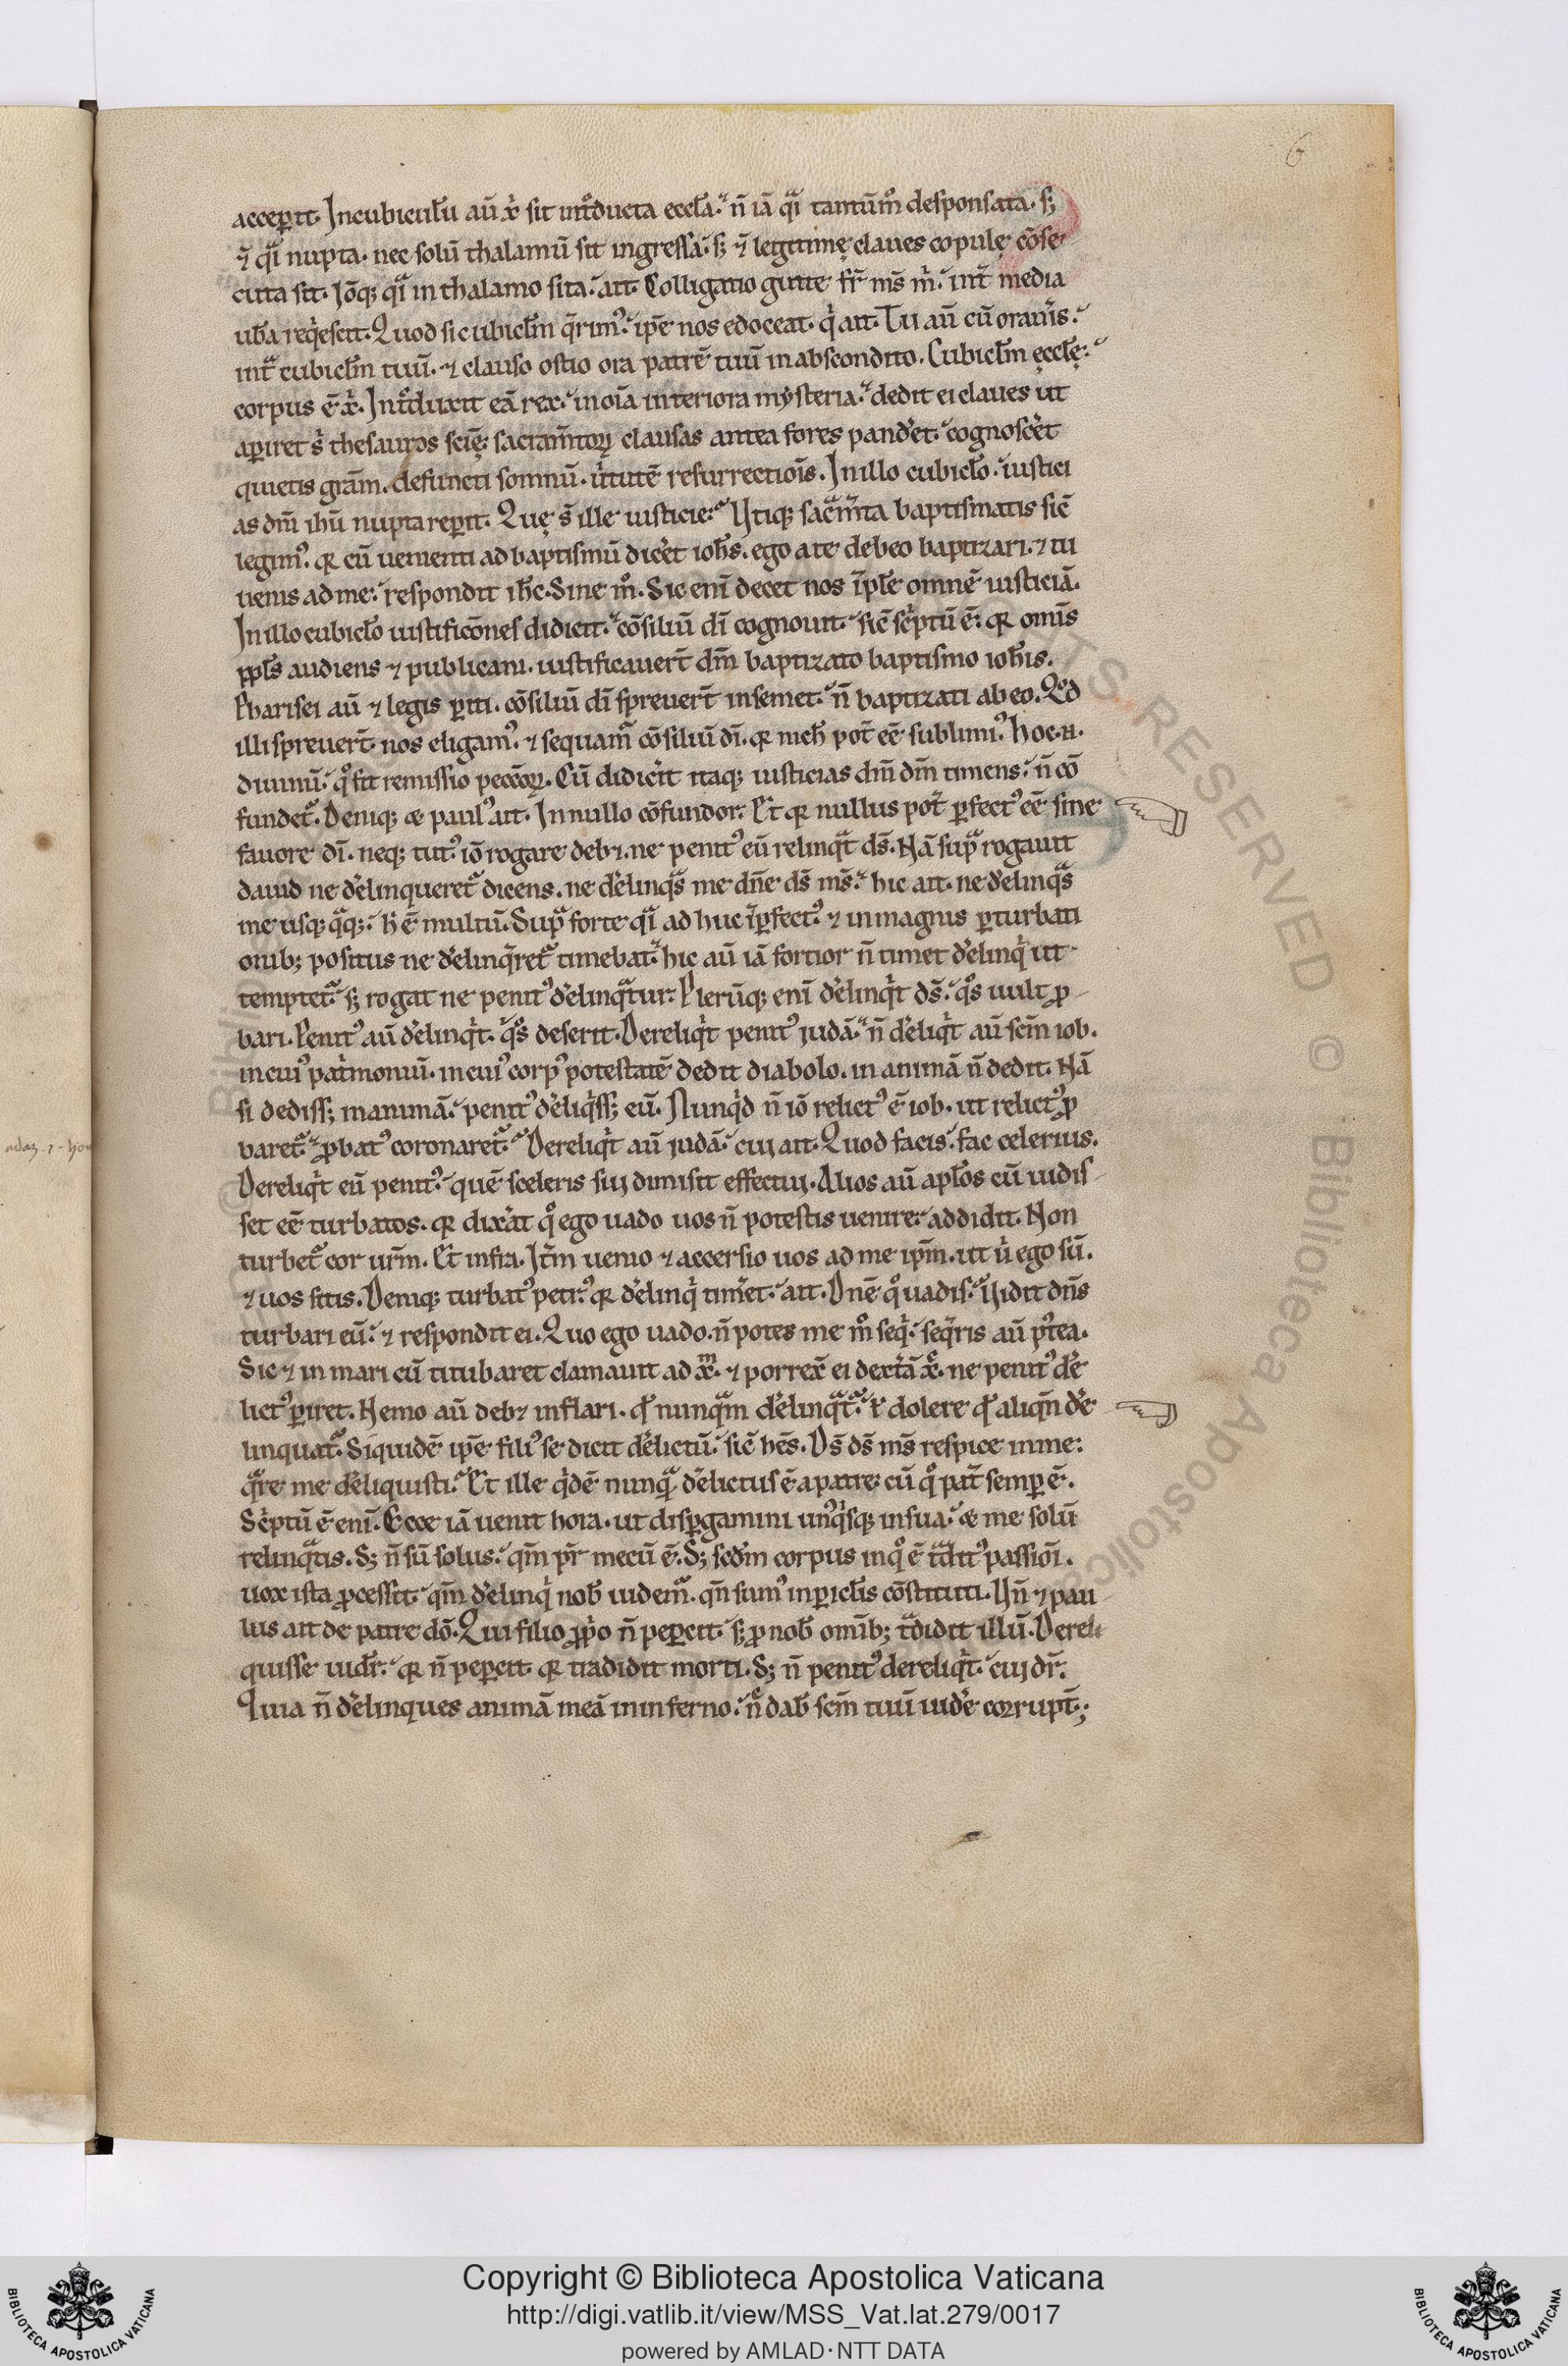 6
accepit. Incubiculu̅ au̅ xp̅s sit int°ducta eccl̅a. n̅ ia̅ qͣi tantu̅m° desponsata. s;
& qͣi nupta. nec solu̅ thalamu̅ sit ingressa. s; & legitimę claues copulę co̅se
cuta sit. Io̅q; qͣi in thalamo sita. ait. Colligatio gutte fr̅ ms̅ m̅. int̅ media
ub̅a req̇escit. Quod sit cubicl̅m q̅rimꝰ. ip̅e nos edoceat. q̇ ait. Tu au̅ cu̅ orau̅is.
intͣ cubicl̅m tuu̅. & clauso ostio ora patre̅ tuu̅ in abscondito. Cubicl̅m ęccl̅ę.
corpus e̅ xp̅i. Int°duxit ea̅ rex. in oi̅a interiora mysteria. dedit ei claues ut
ap̲iret s̅ thesauros scie̅. sacram̅toꝝ clausas antea fores pand̅et. cognosc̅et
quietis gra̅m. defuncti somnu̅. u̅tute̅ resurrectiois̅. In illo cubicl̅o. iustici
as dn̅i ihu̅ nupta rep̲it. Quę s̅ ille iusticie. Utiq; sac̅m̅ta baptismatis sic̅
legimꝰ. qꝛ cu̅ uenienti ad baptismu̅ dic̅et ioh̅s. ego a te debeo baptizari. & tu
uenis ad me. respondit ihc̅. Sine m°. Sic eni̅ decet nos i̅pl̅e omne̅ iusticia̅.
In illo cubicl̅o iustifico̅nes didicit. co̅siliu̅ di̅ cognouit. sic̅ sc̅ptu̅ e̅. qꝛ omi̅s
ppl̅s audiens & publicani. iustificauer̅t dm̅ baptizato baptismo ioh̅is.
Pharisei au̅ & legis p̲iti. co̅siliu̅ di̅ spreuer̅t in semet. n̅ baptizati ab eo. Qd̊
illi spreuer̅t. nos eligamꝰ. & sequam̅ co̅siliu̅ di̅. qꝛ nich̅ pot̅ ee̅ sublimiꝰ. hoc .n.
diuinu̅. q° fit remissio peccoꝝ̅. Cu̅ didic̅it itaq; iusticias dn̅i dm̅ timens. n̅ co̅
fundet̅. Deniq; & paulꝰ ait. In nullo co̅fundor. Et qꝛ nullus pot̅ p̲fectꝰ ee̅ sine
fauore di̅. neq; tutꝰ io̅ rogare deb&. ne penitꝰ eu̅ relinqͣt ds̅. Na̅ supͣ rogauit
dauid ne d̅elinqueret̅ dicens. ne d̅elinqͣs me dn̅e ds̅ ms̅. hic ait. ne d̅elinqͣs
me usq; qͣq;. h̅ e̅ multu̅. Supͣ forte qͣi ad huc i̅p̲fectꝰ. & in magnis p̲turbati
onib; positus ne d̅elinq̅ret̅ timebat. hic au̅ ia̅ fortior n̅ timet d̅elinq̇ ut
temptet̅. s; rogat ne penitꝰ d̅elinqͣtur. Pleru̅q; eni̅ d̅elinq̇t ds̅. q°s uult ꝓ
bari. Penitꝰ au̅ d̅elinq̇t. q°s deserit. Dereliq̇t penitꝰ juda̅. n̅ d̅eliq̇t au̅ scm̅ iob.
in cuiꝰ pat̅moniu̅. in cuiꝰ corpꝰ potestate̅ dedit diabolo. in anima̅ n̅ dedit. Na̅
si dediss; in anima̅. penitꝰ d̅eliq̇ss; eu̅. Nunq̇d n̅ io̅ relictꝰ e̅ iob. ut relictꝰ ꝓ
baret̅. ꝓbatꝰ coronaret̅. Dereliq̇t au̅ juda̅. cuj ait. Quod facis. fac celerius.
Dereliq̇t eu̅ penitꝰ. que̅ sceleris suj dimisit effectuj. Alios au̅ apl̅os cu̅ uidis
set ee̅ turbatos. qꝛ dix̅at q° ego uado uos n̅ potestis uenire. addidit. Non
turbet̅ cor ur̅m. Et infra. It̅m uenio & accersio uos ad me ip̅m. ut u̇ ego su̅.
& uos sitis. Deniq; turbatꝰ petrꝰ. qꝛ d̅elinq̇ tim̅et. ait. Dn̅e q° uadis. Uidit dn̅s
turbari eu̅. & respondit ei. Quo ego uado. n̅ potes me m° seq̇. seq̅ris au̅ p̅tea.
Sic & in mari cu̅ titubaret clamauit ad xp̅m. & porrex̅ ei dext̅a̅ xp̅c. ne penitꝰ d̅e
lictꝰ p̲iret. Nemo au̅ deb& inflari. qd̅ nunqͣm d̅elinqͣt̅. ł dolere qd̅ aliqn̅ d̅e
linquat̅. Siquide̅ ip̅e filiꝰ se dicit d̅elictu̅. sic̅ hes̅. Ds̅ ds̅ ms̅ respice in me.
qͣre me d̅eliquisti. Et ille q̇de̅ nunqͣ d̅elictus e̅ a patre. cu̅ q° pat̅ semp̲ e̅.
Sc̅ptu̅ e̅ eni̅. Ecce ia̅ uenit hora. ut disp̲gamini unꝰq̇sq; in sua. & me solu̅
relinqͣtis. S; n̅ su̅ solus. qm̅ pr̅ mecu̅ e̅. S; scd̅m corpus in q° e̅ tͣditꝰ passioi̅.
uox ista ꝓcessit. qm̅ d̅elinq̇ nob̅ uidem̅. qn̅ sumꝰ in p̲icl̅is co̅stituti. Un̅ & pau
lus ait de patre do̅. Qui filio ꝓṗo n̅ pep̲cit. s; ꝓ nob̅ omi̅b; tͣdidit illu̅. Dereli
quisse uidr̅. qꝛ n̅ pep̲cit. qꝛ tradidit morti. S; n̅ penitꝰ dereliq̇t. cuj dr̅.
Quia n̅ d̅elinques anima̅ mea̅ in inferno. n̅c dab̅ scm̅ tuu̅ uid̅e corrupt̅;
Copyright © Biblioteca Apostolica Vaticana
http://digi.vatlib.it/view/MSS_Vat.lat.279/0017
powered by AMLAD·NTT DATA
BIBLIOTECA APOSTOLICA VATICANA
BIBLIOTECA APOSTOLICA VATICANA